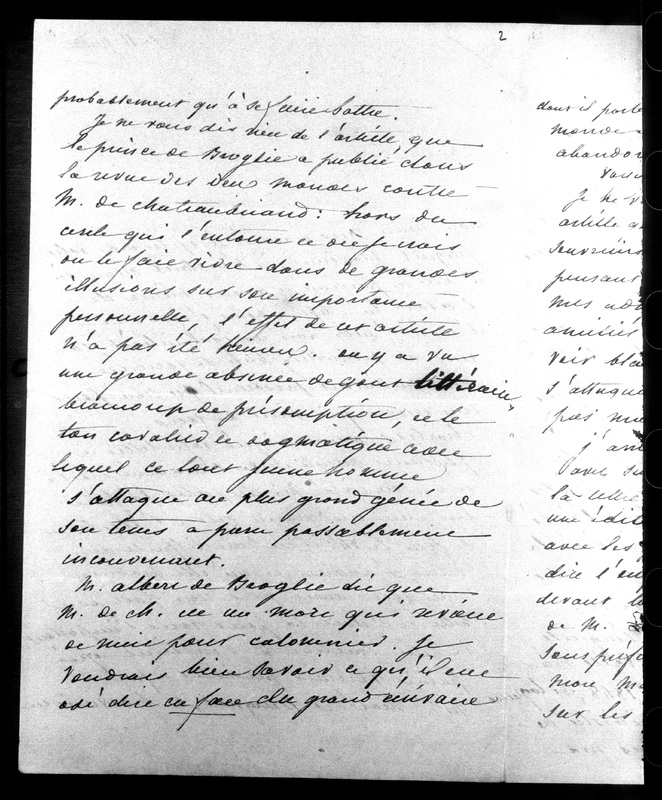 2
probablement qu'à se faire battre.
Je ne vous dis rien de l'article que
le prince de Broglie a publié, dans
la revue des Deux mondes contre
M. de Chateaubriand: hors du
cercle qui l'entoure et où je vois
on le faire vivre dans de grandes
illusions sur son importance
personnelle, l'effet de cet article
n'a pas été heureux. on y a vu
une grande absence de gout littéraire,
beaucoup de présomption, et le
ton cavalier et dogmatique avec
lequel ce tout jeune homme
s'attaque au plus grand génie de
son tems a paru passablement
inconvenant.
M. albert de Broglie dit que
M. de Ch. est un mort qui revient
de nuit pour calomnier. Je
voudrais bien savoir ce qu'il eut
osé dire en face du grand
dont il parle
monde
abandon
Je ne v
article q
souvenirs
pensant
mes
amitiés
voir blâ
s'attaque
pas
la
une édit
avec les
dire l'en
devant l
de M.
sans
mon
sur les